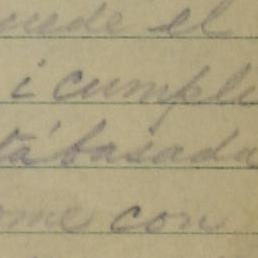 uede el
i cumpli
tá basada
me con